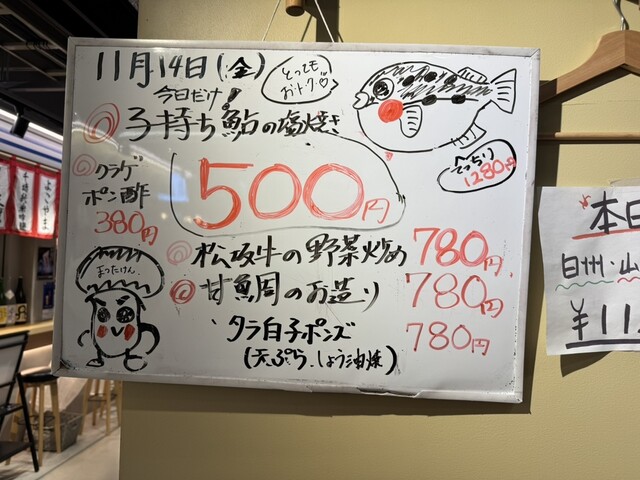 11月14日(金)
今日だけ!
とっても
おトク♡
子持ち鮎の塩焼き
500円
てっちり
1280円
クラゲ
ポン酢
380円
松坂牛の野菜炒め 780円
甘鯛のお造り 780円
タラ白子ポンズ 780円
(天ぷら、しょう油焼)
まつたけん。
本日
白州・山
¥11